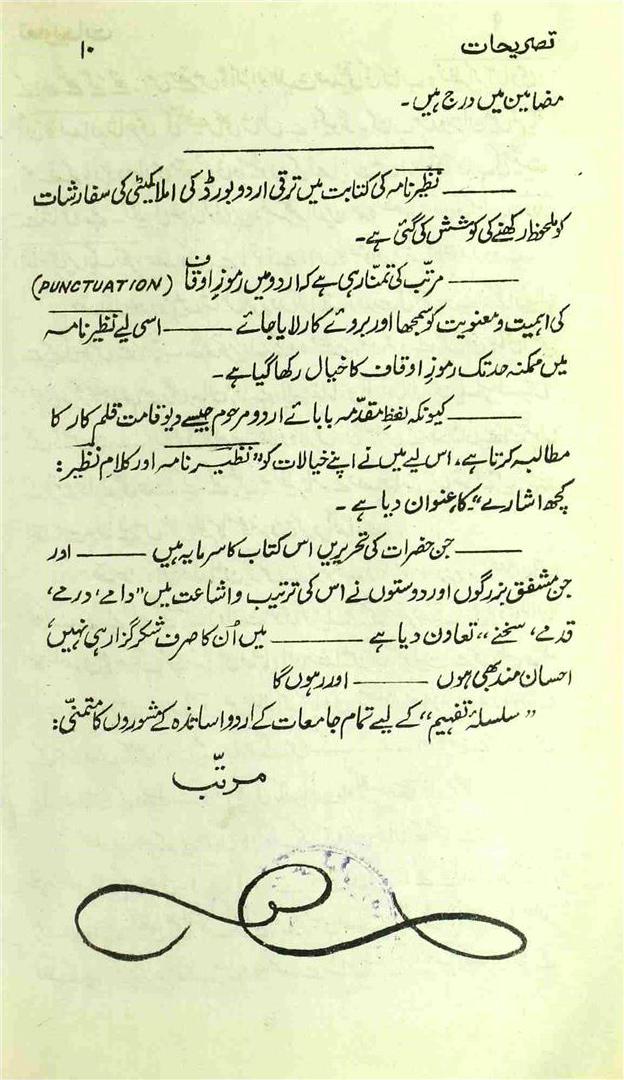 تصریحات ۱۰
مضامین میں درج ہیں۔
——— نظیر نامہ کی کتابت میں ترقی اردو بورڈ کی املا کمیٹی کی سفارشات
کو ملحوظ رکھنے کی کوشش کی گئی ہے۔
——— مرتّب کی تمنّا رہی ہے کہ اردو میں رموزِ اوقاف (PUNCTUATION)
کی اہمیت و معنویت کو سمجھا اور بروئے کار لایا جائے ——— اسی لیے نظیر نامہ
میں ممکنہ حد تک رموزِ اوقاف کا خیال رکھا گیا ہے۔
——— کیونکہ لفظِ مقدّمہ بابائے اردو مرحوم جیسے دیو قامت قلم کار کا
مطالبہ کرتا ہے، اس لیے میں نے اپنے خیالات کو "نظیر نامہ اور کلامِ نظیر:
کچھ اشارے" کا عنوان دیا ہے۔
——— جن حضرات کی تحریریں اس کتاب کا سرمایہ ہیں ——— اور
جن مشفق بزرگوں اور دوستوں نے اس کی ترتیب و اشاعت میں "دامے، درمے،
قدمے، سخنے" تعاون دیا ہے ——— میں اُن کا صرف شکر گزار ہی نہیں،
احسان مند بھی ہوں ——— اور رہوں گا
"سلسلۂ تفہیم" کے لیے تمام جامعات کے اردو اساتذہ کے مشوروں کا متمنّی:
مرتّب